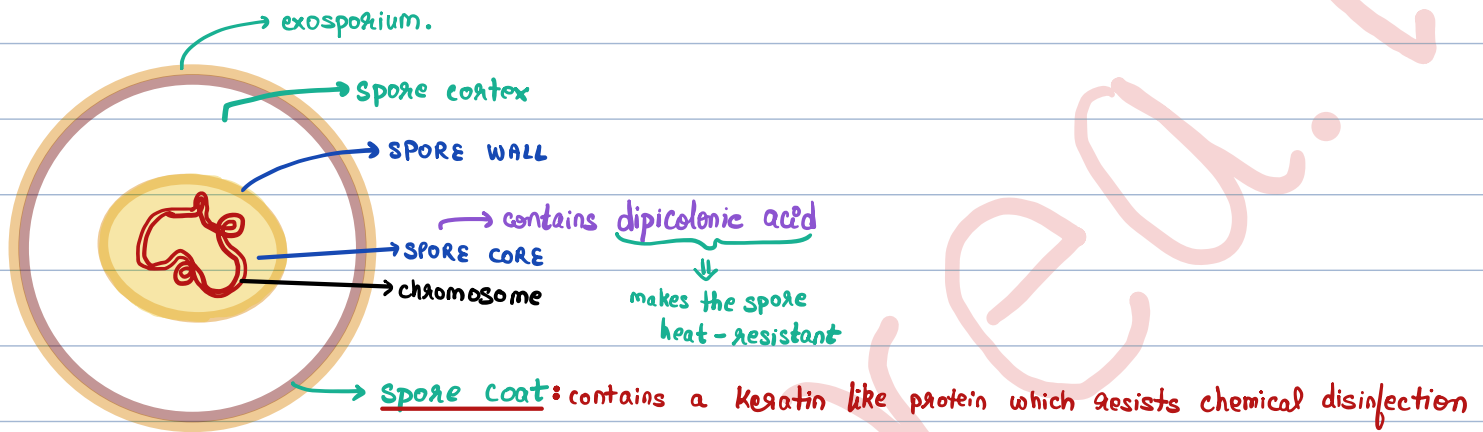 exosporium.
spore cortex
SPORE WALL
contains dipicolonic acid
SPORE CORE
chromosome
makes the spore
heat-resistant
spore coat: contains a keratin like protein which resists chemical disinfection